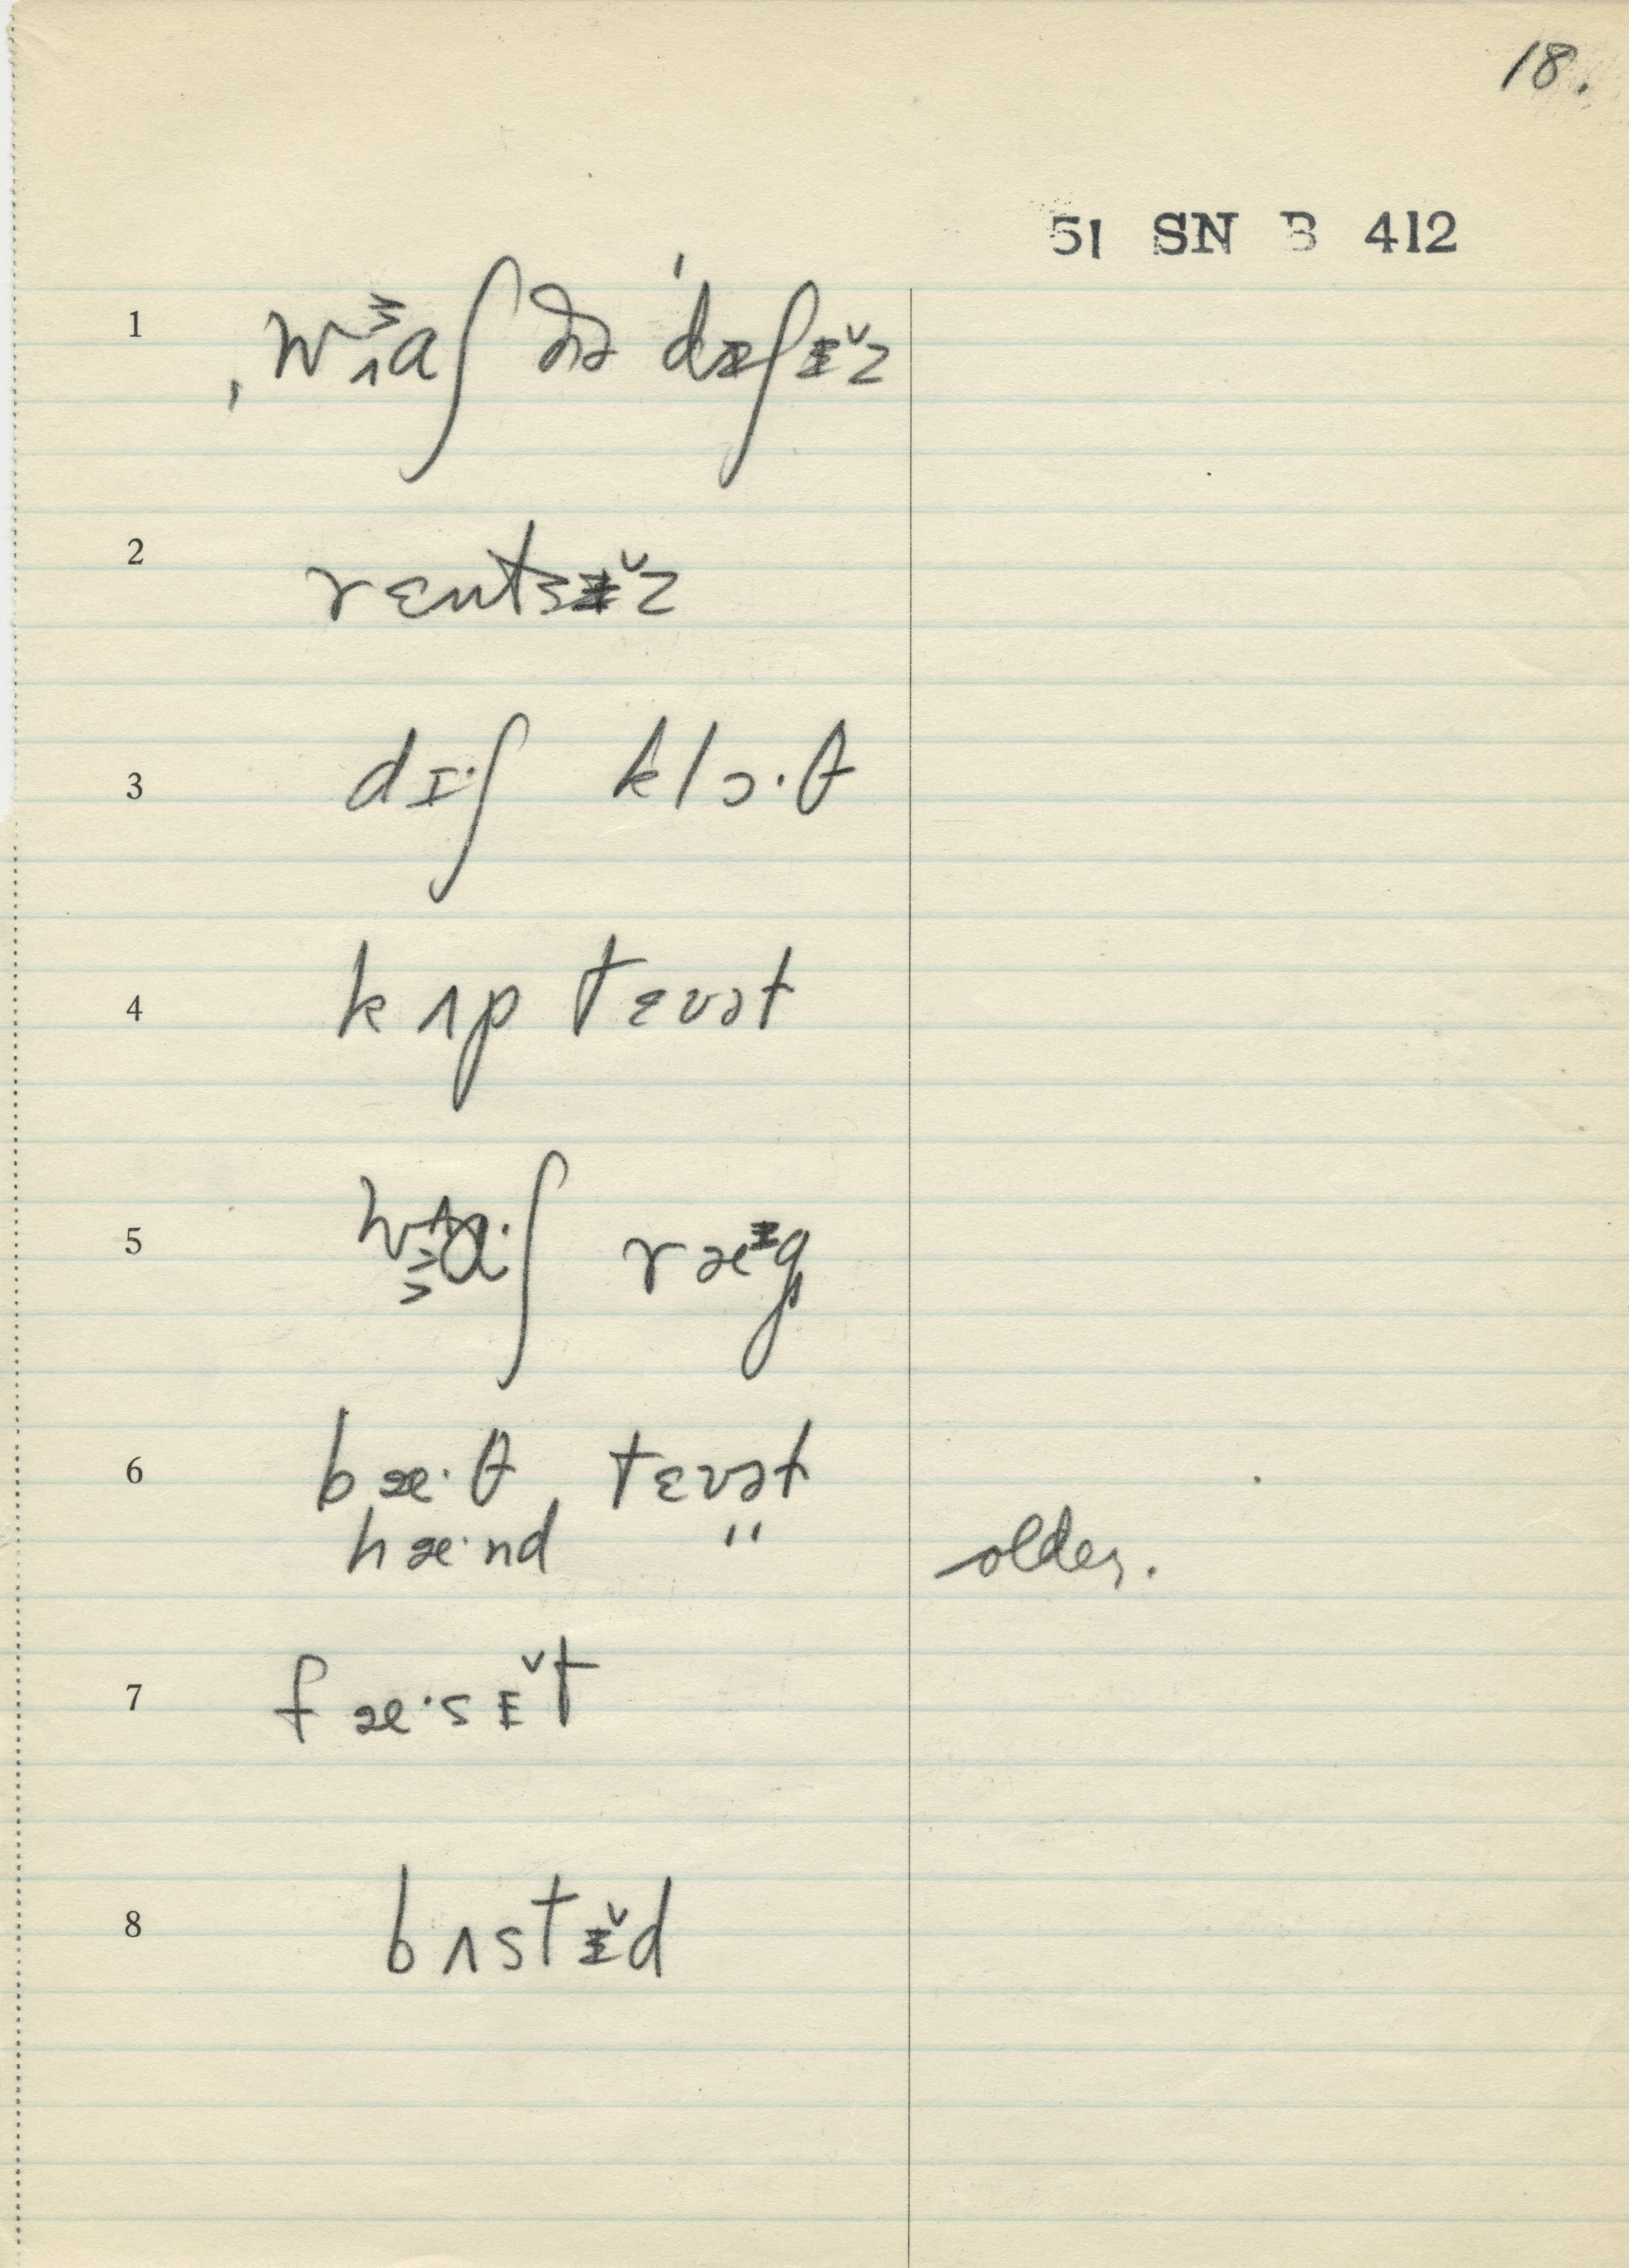 18.
51 SN B 412
1 ˌwɑʃ ðə ˈdɪʃɪ̆z
2 rɛntsɪ̆z
3 dɪ·ʃ klɔ·θ
4 kʌp tɛvət
5 wɑ·ʃ ræᶤg
6 bæ·θ tɛvət
hæ·nd " older.
7 fæ·sɪ̆t
8 bʌstɪ̆d